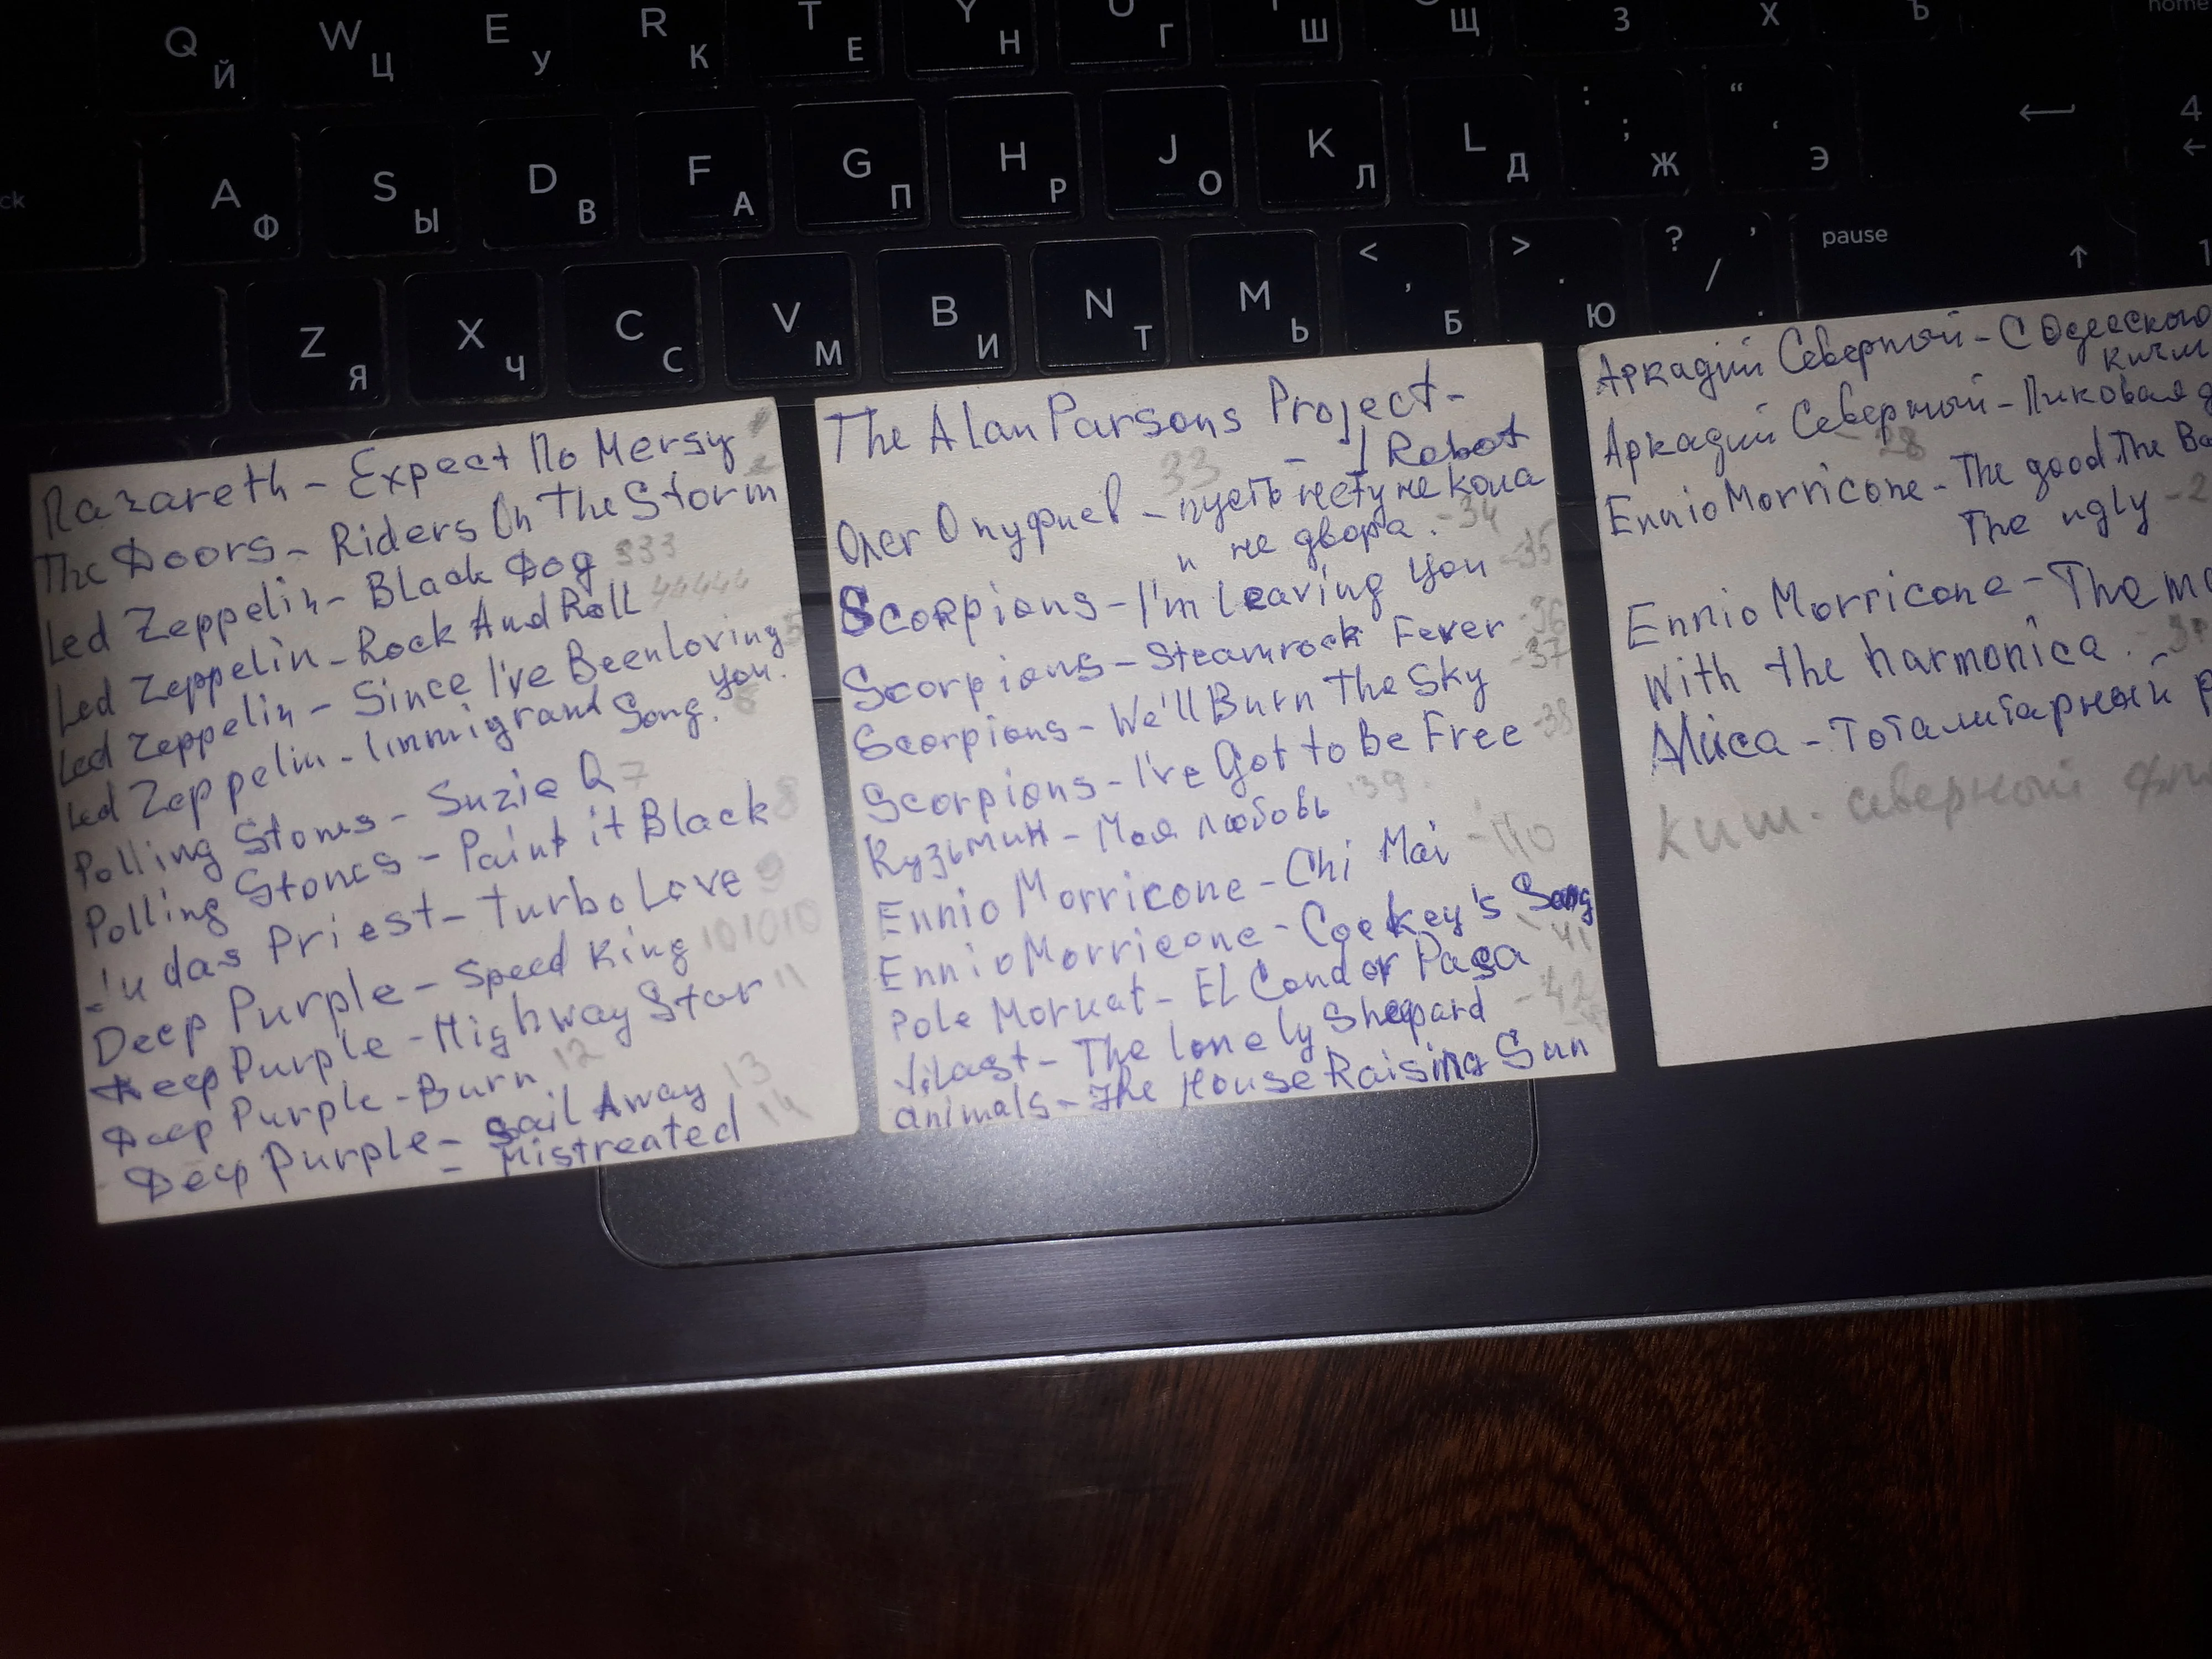 Q Й W Ц E У R К T Е Y Н U Г Ш Щ З Х Ъ home
ck A Ф S Ы D В F А G П H Р J О K Л L Д : ; Ж “ ‘ Э ← 4 ←
Z Я X Ч C С V М B И N Т M Ь < , Б > . Ю ? / , . pause ↑ 1
Nazareth - Expect No Mersy
The Doors - Riders On The Storm 2
Led Zeppelin - Black Dog 333
Led Zeppelin - Rock And Roll 44444
Led Zeppelin - Since I've Been loving 5
you.
Led Zeppelin - Immigrand Song. 6
Rolling Stones - Suzie Q 7
Rolling Stones - Paint it Black 8
Judas Priest - Turbo Love 9
Deep Purple - Speed King 101010
Deep Purple - Highway Star 11
Deep Purple - Burn 12
Deep Purple - Sail Away 13
- Mistreated 14
The Alan Parsons Project -
33 - I Robot
Олег Ануфиев - пусть нету не кола
и не двора. - 34
Scorpions - I'm leaving you - 35
Scorpions - Steamrock Fever - 36
Scorpions - We'll Burn The Sky - 37
Scorpions - I've Got to Be Free - 38
Кузьмин - Моя любовь 39
Ennio Morricone - Chi Mai - 40
Ennio Morricone - Cockey's Song
- 41
Pole Moruat - El Condor Pasa
- The lonely Shepard - 42
animals - The House Raising Sun
Аркадий Северный - С Одесского
кичм
Аркадий Северный - Пиковая д
- 28
Ennio Morricone - The good The Ba
The ugly - 2
Ennio Morricone - The m
With the harmonica. - 3
Алиса - Тоталитарный р
Киш - северный